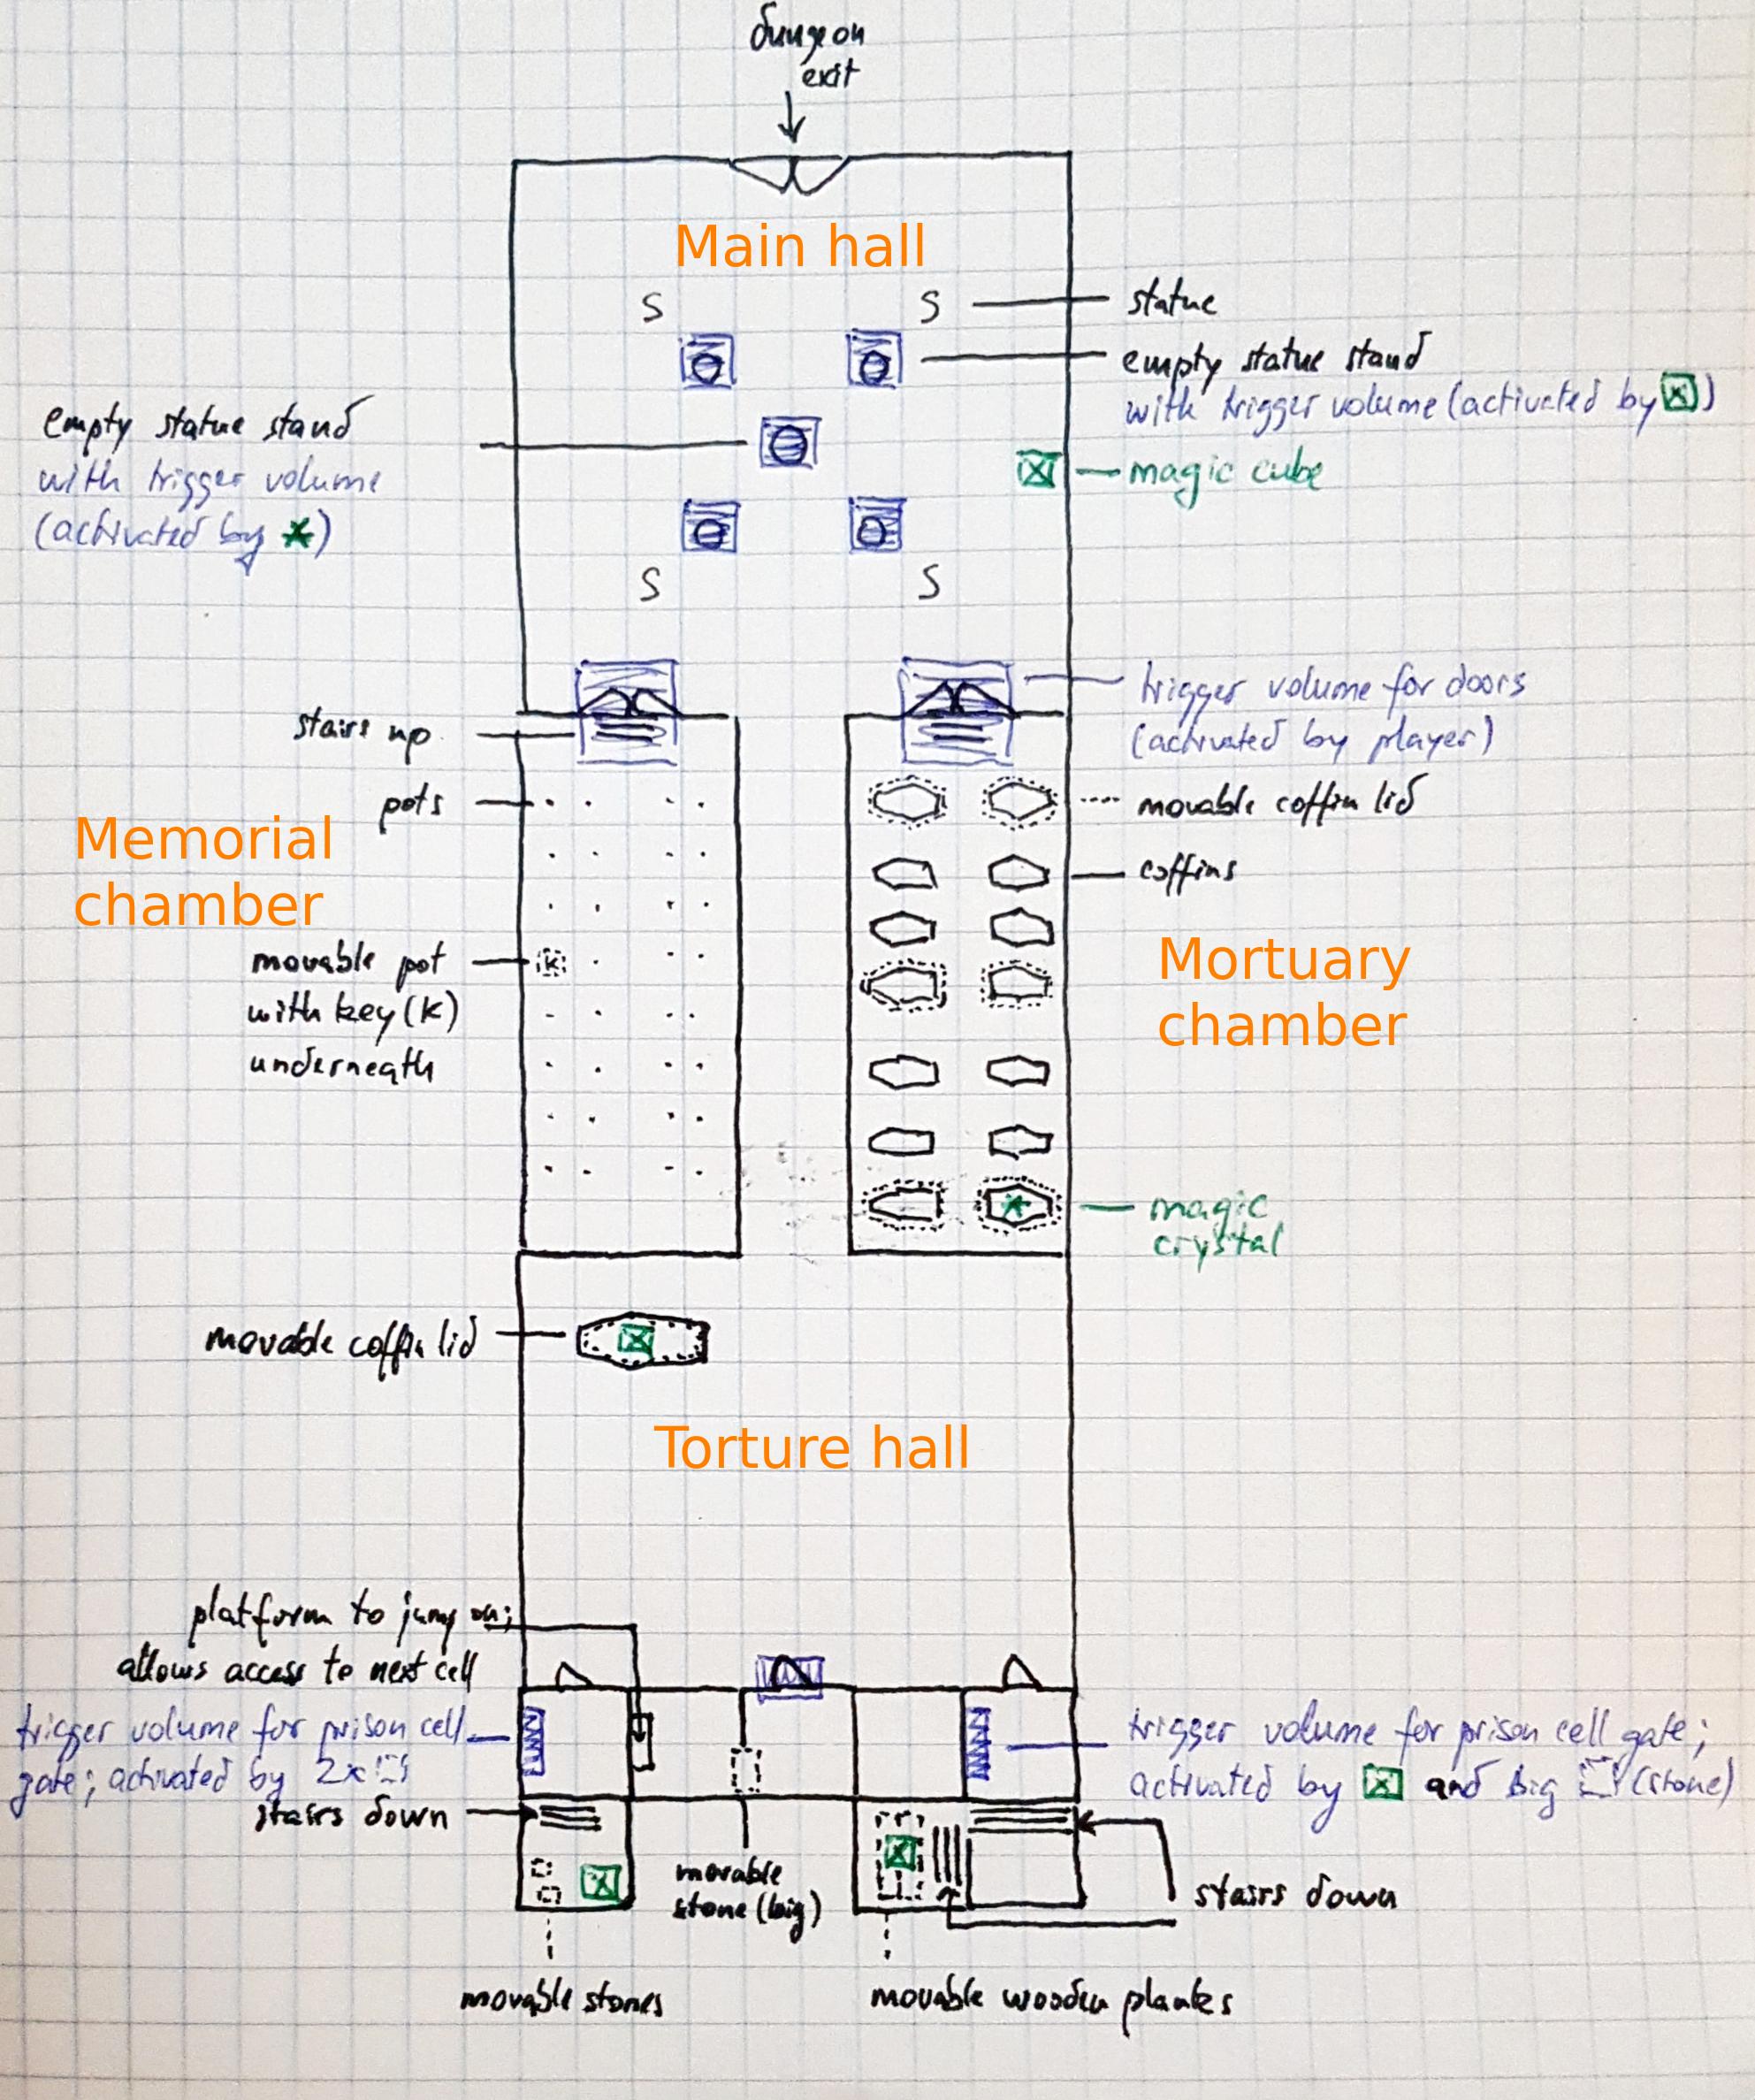 dungeon
exit
Main hall
S
S
statue
empty statue stand
with trigger volume (activated by)
empty statue stand
with trigger volume
(activated by)
magic cube
S
S
trigger volume for doors
(activated by player)
stairs up
pots
movable coffin lid
Memorial
chamber
coffins
movable pot
with key (K)
underneath
K
Mortuary
chamber
magic
crystal
movable coffin lid
Torture hall
platform to jump on;
allows access to next cell
trigger volume for prison cell
gate; activated by 2x
trigger volume for prison cell gate;
activated by and big (stone)
stairs down
movable
stone (big)
stairs down
movable stones
movable wooden planks